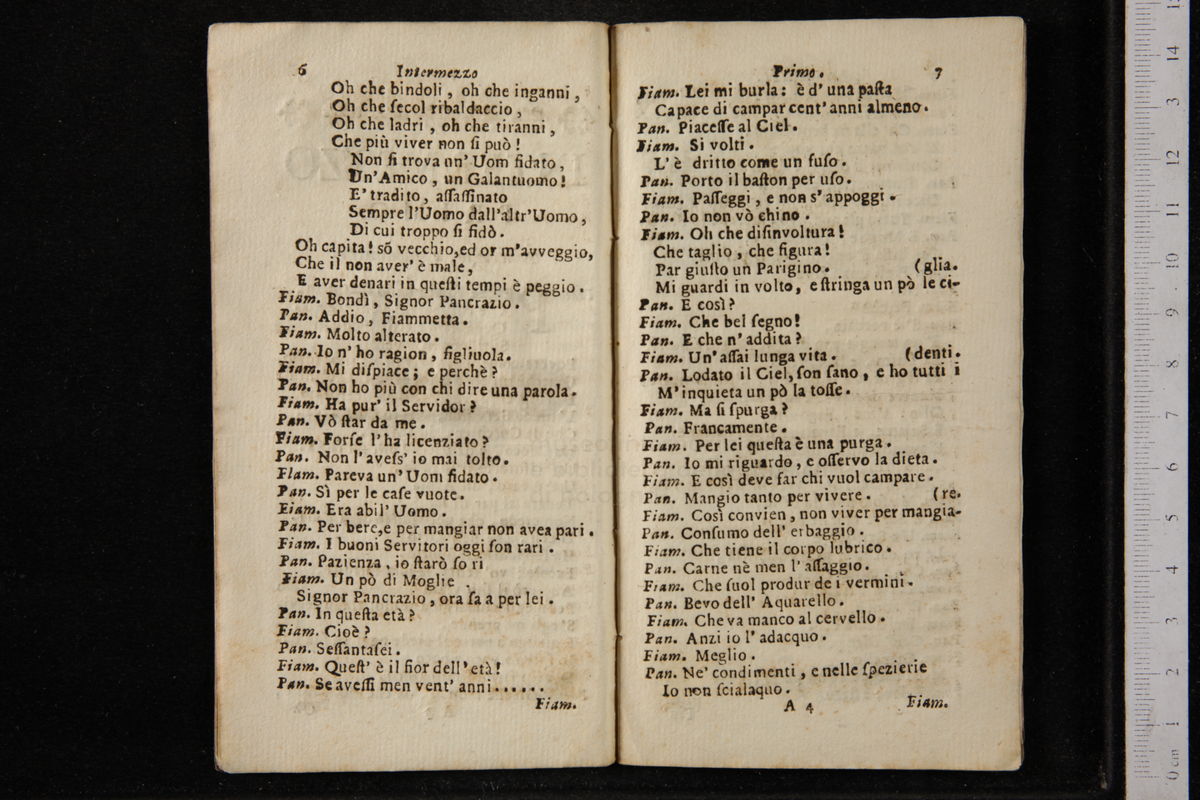 6 Intermezzo
Oh che bindoli, oh che inganni,
Oh che ſecol ribaldaccio,
Oh che ladri, oh che tiranni,
Che più viver non ſi può!
Non ſi trova un' Uom fidato,
Un'Amico, un Galantuomo!
E' tradito, aſſaſſinato
Sempre l'Uomo dall'altr'Uomo,
Di cui troppo ſi fidò.
Oh capita! sõ vecchio, ed or m'avveggio,
Che il non aver' è male,
E aver denari in queſti tempi è peggio.
Fiam. Bondì, Signor Pancrazio.
Pan. Addio, Fiammetta.
Fiam. Molto alterato.
Pan. Io n' ho ragion, figliuola.
Fiam. Mi diſpiace; e perchè?
Pan. Non ho più con chi dire una parola.
Fiam. Ha pur' il Servidor?
Pan. Vò ſtar da me.
Fiam. Forſe l' ha licenziato?
Pan. Non l' aveſs' io mai tolto.
Fiam. Pareva un' Uom fidato.
Pan. Sì per le caſe vuote.
Fiam. Era abil' Uomo.
Pan. Per bere, e per mangiar non avea pari.
Fiam. I buoni Servitori oggi ſon rari.
Pan. Pazienza, io ſtarò ſo ri
Fiam. Un pò di Moglie
Signor Pancrazio, ora fa a per lei.
Pan. In queſta età?
Fiam. Cioè?
Pan. Seſſantaſei.
Fiam. Queſt' è il fior dell' età!
Pan. Se aveſſi men vent' anni......
Fiam.
Primo. 7
Fiam. Lei mi burla: è d' una paſta
Capace di campar cent' anni almeno.
Pan. Piaceſſe al Ciel.
Fiam. Si volti.
L' è dritto come un fuſo.
Pan. Porto il baſton per uſo.
Fiam. Paſſeggi, e non s' appoggi.
Pan. Io non vò chino.
Fiam. Oh che diſinvoltura!
Che taglio, che figura!
Par giuſto un Parigino. (glia.
Mi guardi in volto, e ſtringa un pò le ci-
Pan. E così?
Fiam. Che bel ſegno!
Pan. E che n' addita?
Fiam. Un' aſſai lunga vita. (denti.
Pan. Lodato il Ciel, ſon ſano, e ho tutti i
M' inquieta un pò la toſſe.
Fiam. Ma ſi ſpurga?
Pan. Francamente.
Fiam. Per lei queſta è una purga.
Pan. Io mi riguardo, e oſſervo la dieta.
Fiam. E così deve far chi vuol campare.
Pan. Mangio tanto per vivere. (re.
Fiam. Così convien, non viver per mangia-
Pan. Conſumo dell' erbaggio.
Fiam. Che tiene il corpo lubrico.
Pan. Carne nè men l' aſſaggio.
Fiam. Che ſuol produr de i vermini.
Pan. Bevo dell' Aquarello.
Fiam. Che va manco al cervello.
Pan. Anzi io l' adacquo.
Fiam. Meglio.
Pan. Ne' condimenti, e nelle ſpezierie
Io non ſcialaquo.
A 4 Fiam.